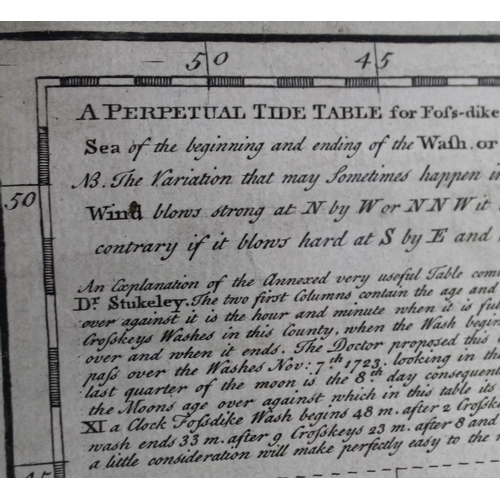 50 45
A PERPETUAL TIDE TABLE for Foſs-dike
Sea of the beginning and ending of the Waſh. or
50
NB. The Variation that may Sometimes happen in
Wind blows strong at N by W or NNW it
contrary if it blows hard at S by E and
An Explanation of the Annexed very useful Table com
Dr. Stukeley. The two first Columns contain the age and
over against it is the hour and minute when it is ful
Croſskeys Washes in this County, when the Wash begin
over and when it ends. The Doctor proposed this
paſs over the Washes Nov. 7th 1723, looking in the
last quarter of the moon is the 8th day consequent
the Moons age over against which in this table its
XI a Clock Foſsdike Wash begins 48 m. after 2 Croſsk
wash ends 33 m. after 9 Croſskeys 23 m. after 8 and
a little consideration will make perfectly easy to the
45